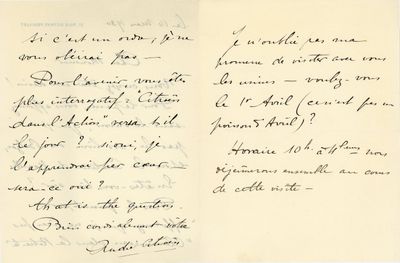 si c'est un ordre, je ne
vous obéirai pas —
Pour l'avenir vous êtes
plus interrogatif : "Citroën
dans l'Action" verra-t-il
le jour ? si oui, je
l'apprendrai par cœur —
sera-ce oui ?
that is the question.
Bien cordialement vôtre
André Citroën
Je n'oublie pas ma
promesse de visiter avec vous
les usines — voulez-vous
le 1er Avril (ceci n'est pas un
poisson d'Avril) ?
Horaire 10h. à 4 heures nous
déjeunerons ensemble au cours
de cette visite —